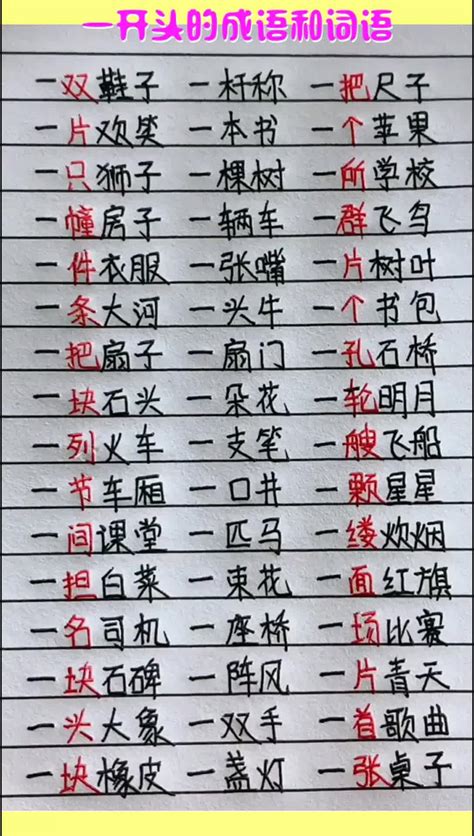 一开头的成语和词语
一双鞋子 一杆称 一把尺子
一片欢笑 一本书 一个苹果
一只狮子 一棵树 一所学校
一幢房子 一辆车 一群飞鸟
一件衣服 一张嘴 一片树叶
一条大河 一头牛 一个书包
一把扇子 一扇门 一孔石桥
一块石头 一朵花 一轮明月
一列火车 一支笔 一艘飞船
一节车厢 一口井 一颗星星
一间课堂 一匹马 一缕炊烟
一担白菜 一束花 一面红旗
一名司机 一座桥 一场比赛
一块石碑 一阵风 一片青天
一头大象 一双手 一首歌曲
一块橡皮 一盏灯 一张桌子